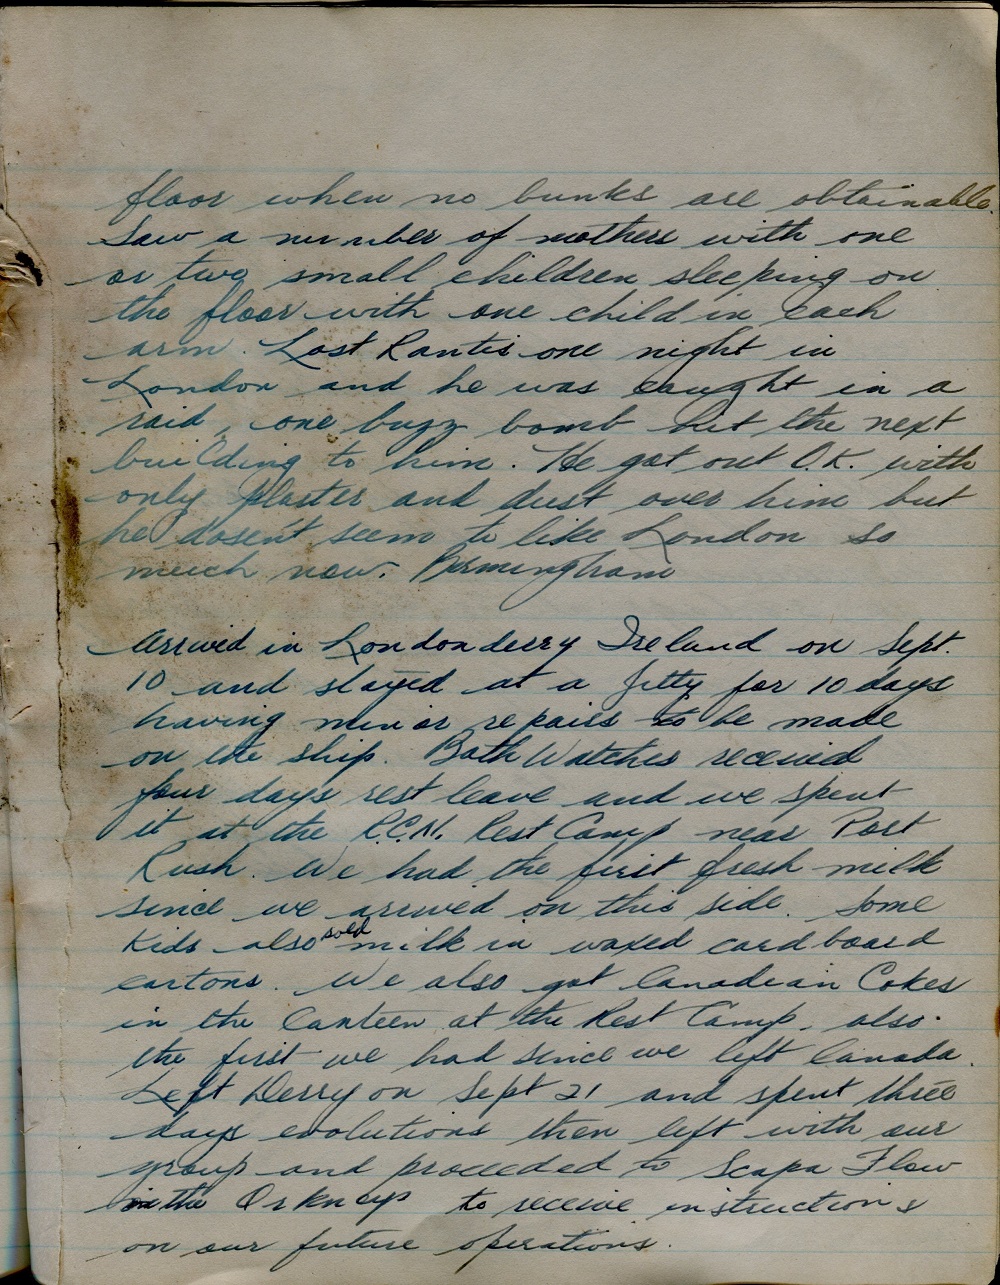 floor when no bunks are obtainable.
Saw a number of mothers with one
or two small children sleeping on
the floor with one child in each
arm. Lost Rantis one night in
London and he was caught in a
raid, one buzz bomb hit the next
building to him. He got out O.K. with
only plaster and dust over him but
he dosen't seem to like London so
much now. Birmingham
Arrived in Londonderry Ireland on Sept.
10 and stayed at a jetty for 10 days
having minor repairs to be made
on the ship. Both Watches received
four days rest leave and we spent
it at the R.C.N. Rest Camp near Port
Rush. We had the first fresh milk
since we arrived on this side. Some
Kids also sold milk in waxed cardboard
cartons. We also got Canadian Cokes
in the Canteen at the Rest Camp, also
the first we had since we left Canada.
Left Derry on Sept 21 and spent three
days evolutions then left with our
group and proceeded to Scapa Flow
in the Orkneys to receive instructions
on our future operations.